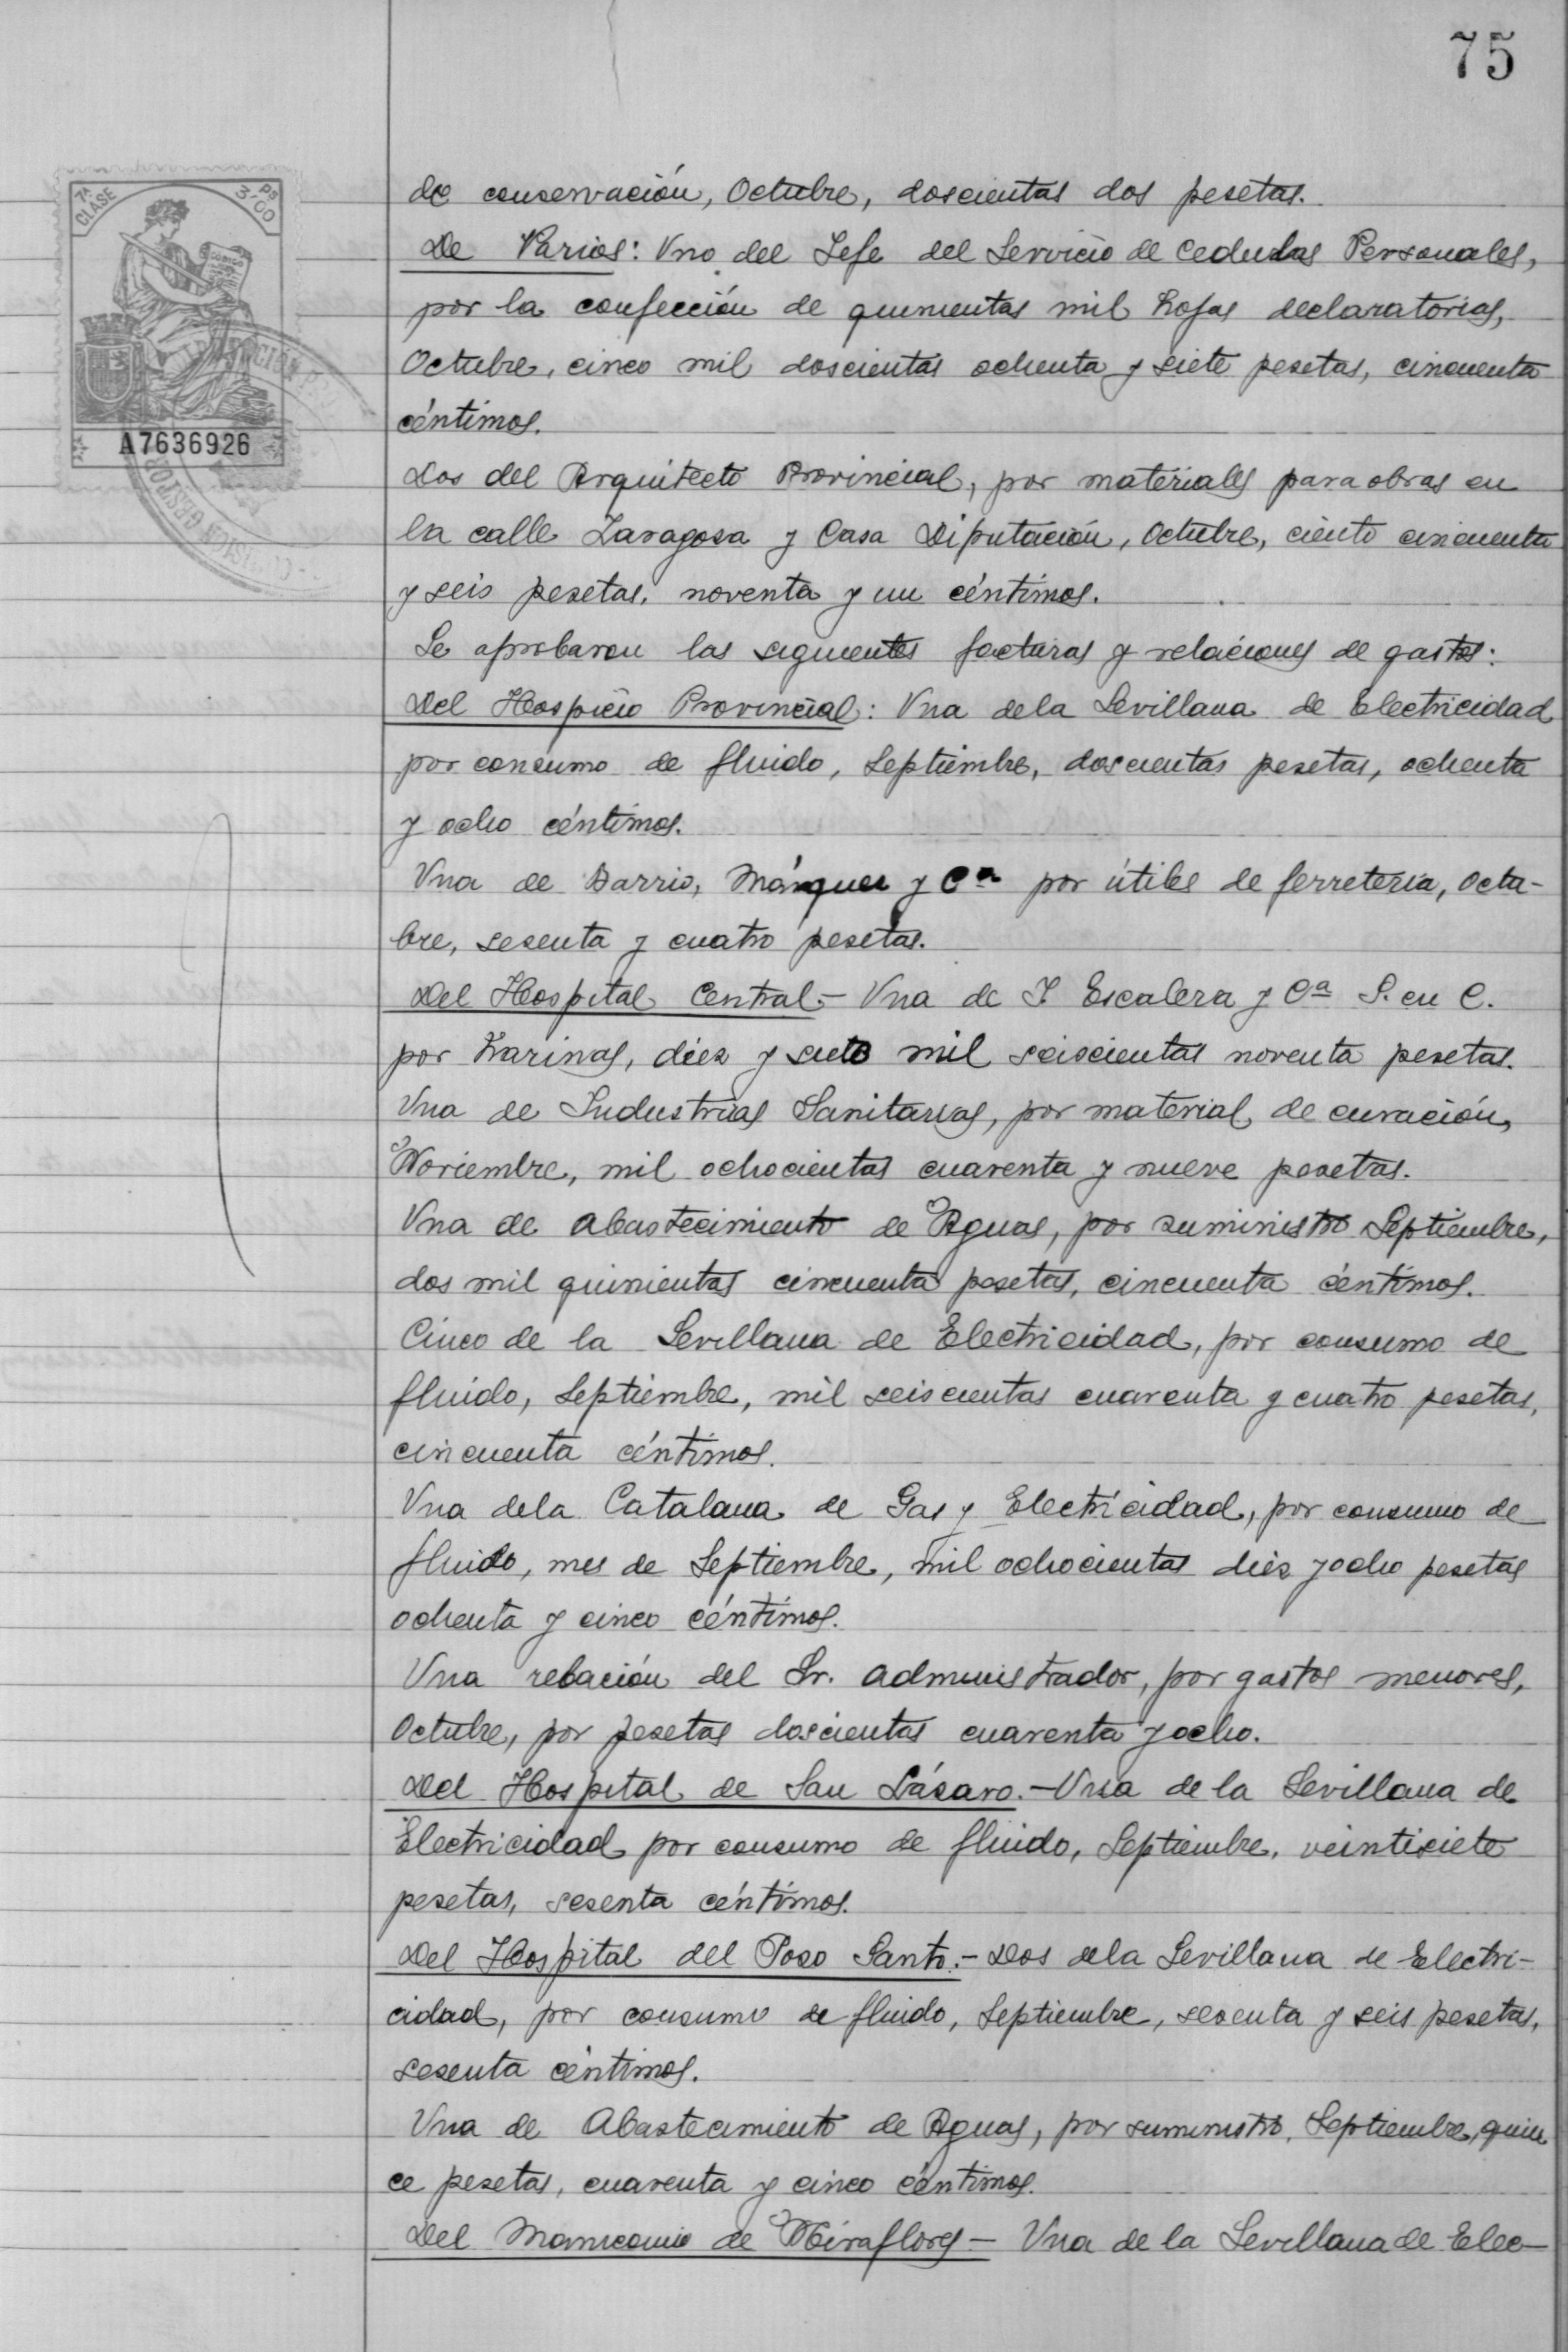 75
7ª CLASE
3'00 PS
A7636926
de conservación, Octubre, doscientas dos pesetas.
De Varios: Uno del Jefe del Servicio de Cedulas Personales,
por la confección de quinientas mil hojas declaratorias,
Octubre, cinco mil doscientas ochenta y siete pesetas, cincuenta
céntimos.
Dos del Arquitecto Provincial, por materiales para obras en
la calle Zaragoza y Casa Diputación, Octubre, ciento cincuenta
y seis pesetas, noventa y un céntimos.
Se aprobaron las siguientes facturas y relaciones de gastos:
Del Hospicio Provincial: Una dela Sevillana de Electricidad
por consumo de fluido, Septiembre, doscientas pesetas, ochenta
y ocho céntimos.
Una de Barrio, Márquez y Cª por útiles de ferretería, Octu-
bre, sesenta y cuatro pesetas.
Del Hospital Central.- Una de J. Escalera y Cª S. en C.
por harinas, diez y siete mil seiscientas noventa pesetas.
Una de Industrias Sanitarias, por material de curación,
Noviembre, mil ochocientas cuarenta y nueve pesetas.
Una de Abastecimiento de Aguas, por suministro Septiembre,
dos mil quinientas cincuenta pesetas, cincuenta céntimos.
Cinco de la Sevillana de Electricidad, por consumo de
fluido, Septiembre, mil seiscientas cuarenta y cuatro pesetas,
cincuenta céntimos.
Una dela Catalana de Gas y Electricidad, por consumo de
fluido, mes de Septiembre, mil ochocientas diez y ocho pesetas
ochenta y cinco céntimos.
Una relación del Sr. Administrador, por gastos menores,
Octubre, por pesetas doscientas cuarenta y ocho.
Del Hospital de San Lázaro.- Una de la Sevillana de
Electricidad por consumo de fluido, Septiembre, veintisiete
pesetas, sesenta céntimos.
Del Hospital del Pozo Santo.- Dos dela Sevillana de Electri-
cidad, por consumo de fluido, Septiembre, sesenta y seis pesetas,
sesenta céntimos.
Una de Abastecimiento de Aguas, por suministro, Septiembre, quin
ce pesetas, cuarenta y cinco céntimos.
Del Manicomio de Miraflores - Una de la Sevillana de Elec-